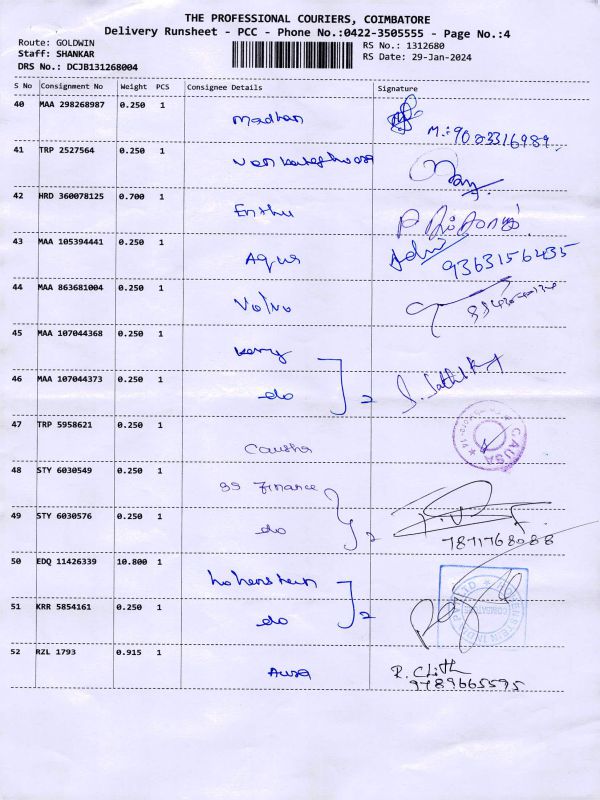 THE PROFESSIONAL COURIERS, COIMBATORE
Delivery Runsheet - PCC - Phone No.:0422-3505555 - Page No.:4
Route: GOLDWIN
RS No.: 1312680
Staff: SHANKAR
RS Date: 29-Jan-2024
DRS No.: DCJB131268004
S No Consignment No Weight PCS Consignee Details Signature
40 MAA 298268987 0.250 1 Madhan
41 TRP 2527564 0.250 1
42 HRD 360078125 0.700 1 Enthu
43 MAA 105394441 0.250 1 Aqua 9363156435
44 MAA 863681004 0.250 1 Volvo
45 MAA 107044368 0.250 1 kerry
46 MAA 107044373 0.250 1 do 2
47 TRP 5958621 0.250 1 Causha CAUSA
48 STY 6030549 0.250 1 gs Finance
49 STY 6030576 0.250 1 do 2 7871768088
50 EDQ 11426339 10.800 1 hohenstein
51 KRR 5854161 0.250 1 do 2
52 RZL 1793 0.915 1 9789665595